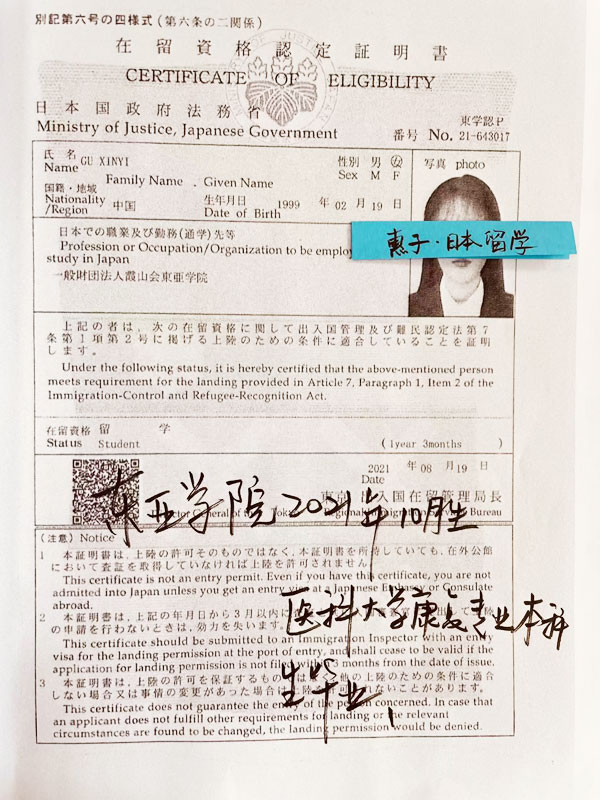 別記第六号の四様式(第六条の二関係)
在留資格認定証明書
CERTIFICATE OF ELIGIBILITY
日本国政府法務省
Ministry of Justice, Japanese Government
東学認P
番号 No. 21-643017
氏名 GU XINYI
Name
Family Name Given Name
性別 男 女
Sex M F
写真 photo
国籍・地域
Nationality
/Region 中国
生年月日 1999 年 02 月 19 日
Date of Birth
惠子·日本留学
日本での職業及び勤務(通学)先等
Profession or Occupation/Organization to be employ
study in Japan
一般財団法人霞山会東亜学院
上記の者は、次の在留資格に関して出入国管理及び難民認定法第7
条第1項第2号に掲げる上陸のための条件に適合していることを証明
します。
Under the following status, it is hereby certified that the above-mentioned person
meets requirement for the landing provided in Article 7, Paragraph 1, Item 2 of the
Immigration-Control and Refugee-Recognition Act.
在留資格 留 学
Status Student
(1year 3months )
2021 年 08 月 19 日
Date
东亚学院2021年10月生
東京 出入国在留管理局長
rector General of the Tok Regional Immigration Services Bureau
(注意) Notice
1 本証明書は、上陸の許可そのものではなく、本証明書を所持していても、在外公館
において査証を取得していなければ上陸を許可されません
This certificate is not an entry permit. Even if you have this certificate, you are not
admitted into Japan unless you get an entry visa at a Japanese Embassy or Consulate
abroad.
2 本証明書は、上記の年月日から3月以内に
の申請を行わないときは、効力を失います。
This certificate should be submitted to an Immigration Inspector with an entry
visa for the landing permission at the port of entry, and shall cease to be valid if the
application for landing permission is not filed within 3 months from the date of issue.
医科大学康复专业本科
生毕业
3 本証明書は、上陸の許可を保証するものではなく他の上陸のための条件に適合
しない場合又は事情の変更があった場合は上陸を許可されないことがあります。
This certificate does not guarantee the entry of the person concerned. In case that
an applicant does not fulfill other requirements for landing or the relevant
circumstances are found to be changed, the landing permission would be denied.